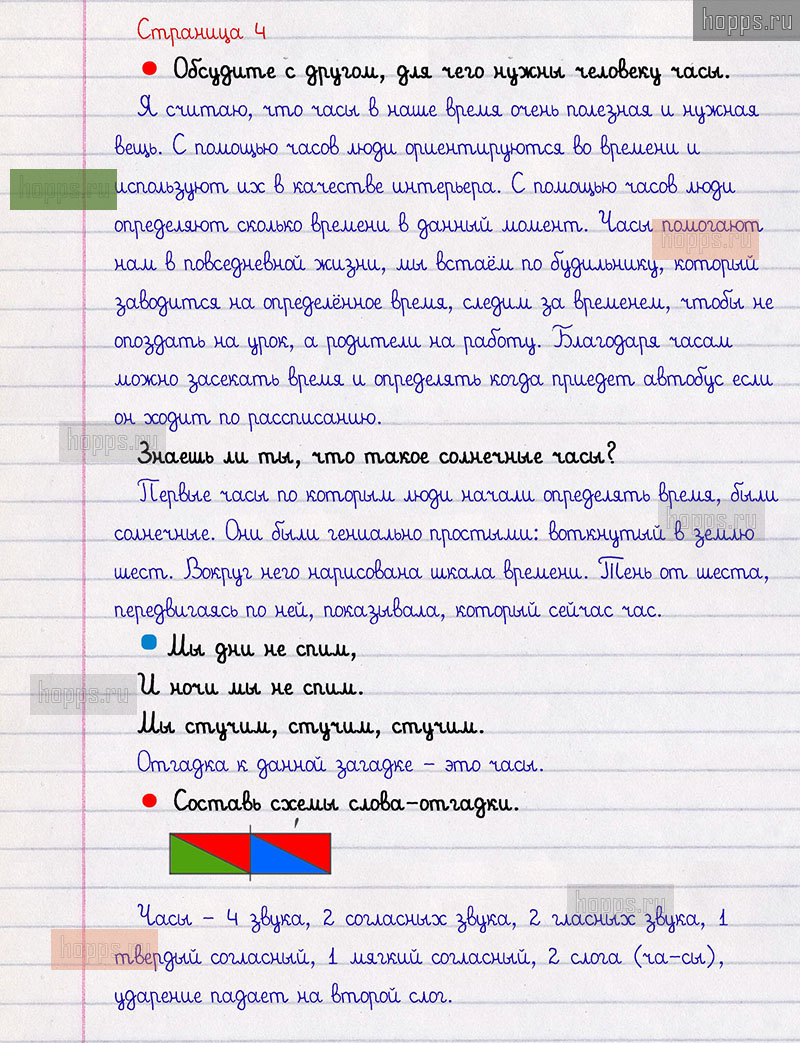 hopps.ru
Страница 4
Обсудите с другом, для чего нужны человеку часы.
Я считаю, что часы в наше время очень полезная и нужная
вещь. С помощью часов люди ориентируются во времени и
hopps.ru
используют их в качестве интерьера. С помощью часов люди
определяют сколько времени в данный момент. Часы помогают
hopps.ru
нам в повседневной жизни, мы встаём по будильнику, который
заводится на определённое время, следим за временем, чтобы не
опоздать на урок, а родители на работу. Благодаря часам
можно засекать время и определять когда приедет автобус если
он ходит по рассписанию.
hopps.ru
Знаешь ли ты, что такое солнечные часы?
Первые часы по которым люди начали определять время, были
hopps.ru
солнечные. Они были гениально простыми: воткнутый в землю
шест. Вокруг него нарисована шкала времени. Тень от шеста,
передвигаясь по ней, показывала, который сейчас час.
Мы дни не спим,
И ночи мы не спим.
hopps.ru
Мы стучим, стучим, стучим.
Отгадка к данной загадке – это часы.
Составь схемы слова-отгадки.
hopps.ru
Часы – 4 звука, 2 согласных звука, 2 гласных звука, 1
hopps.ru
твердый согласный, 1 мягкий согласный, 2 слога (ча-сы),
ударение падает на второй слог.